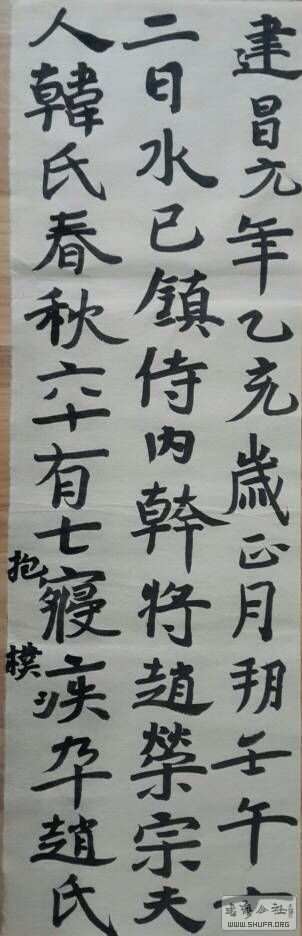 建昌元年乙亥歲正月朔壬午十
二日水巳鎮侍內幹將趙榮宗夫
人韓氏春秋六十有七寢疾卒趙氏
抱樸
WWW.SHUFA.ORG